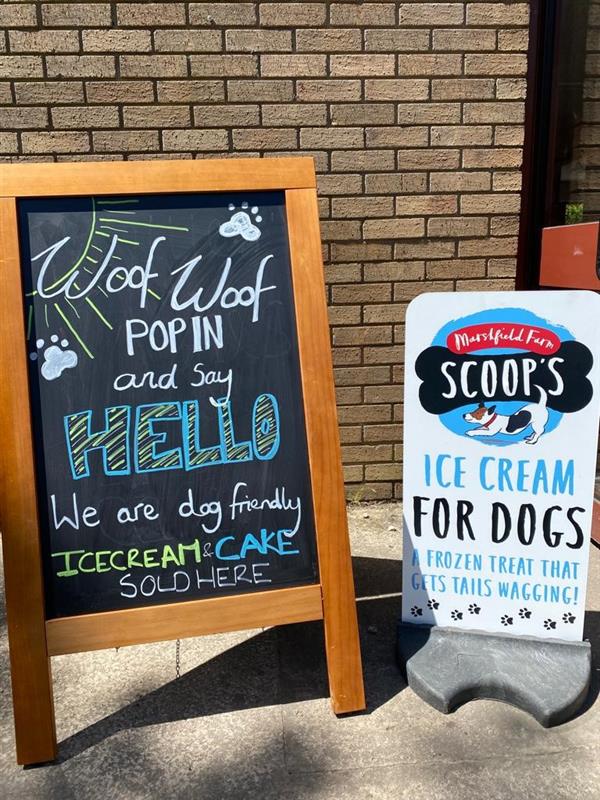 Woof Woof
POP IN
and Say
HELLO
We are dog friendly
ICECREAM & CAKE
SOLD HERE
Marshfield Farm
SCOOP'S
ICE CREAM
FOR DOGS
A FROZEN TREAT THAT
GETS TAILS WAGGING!